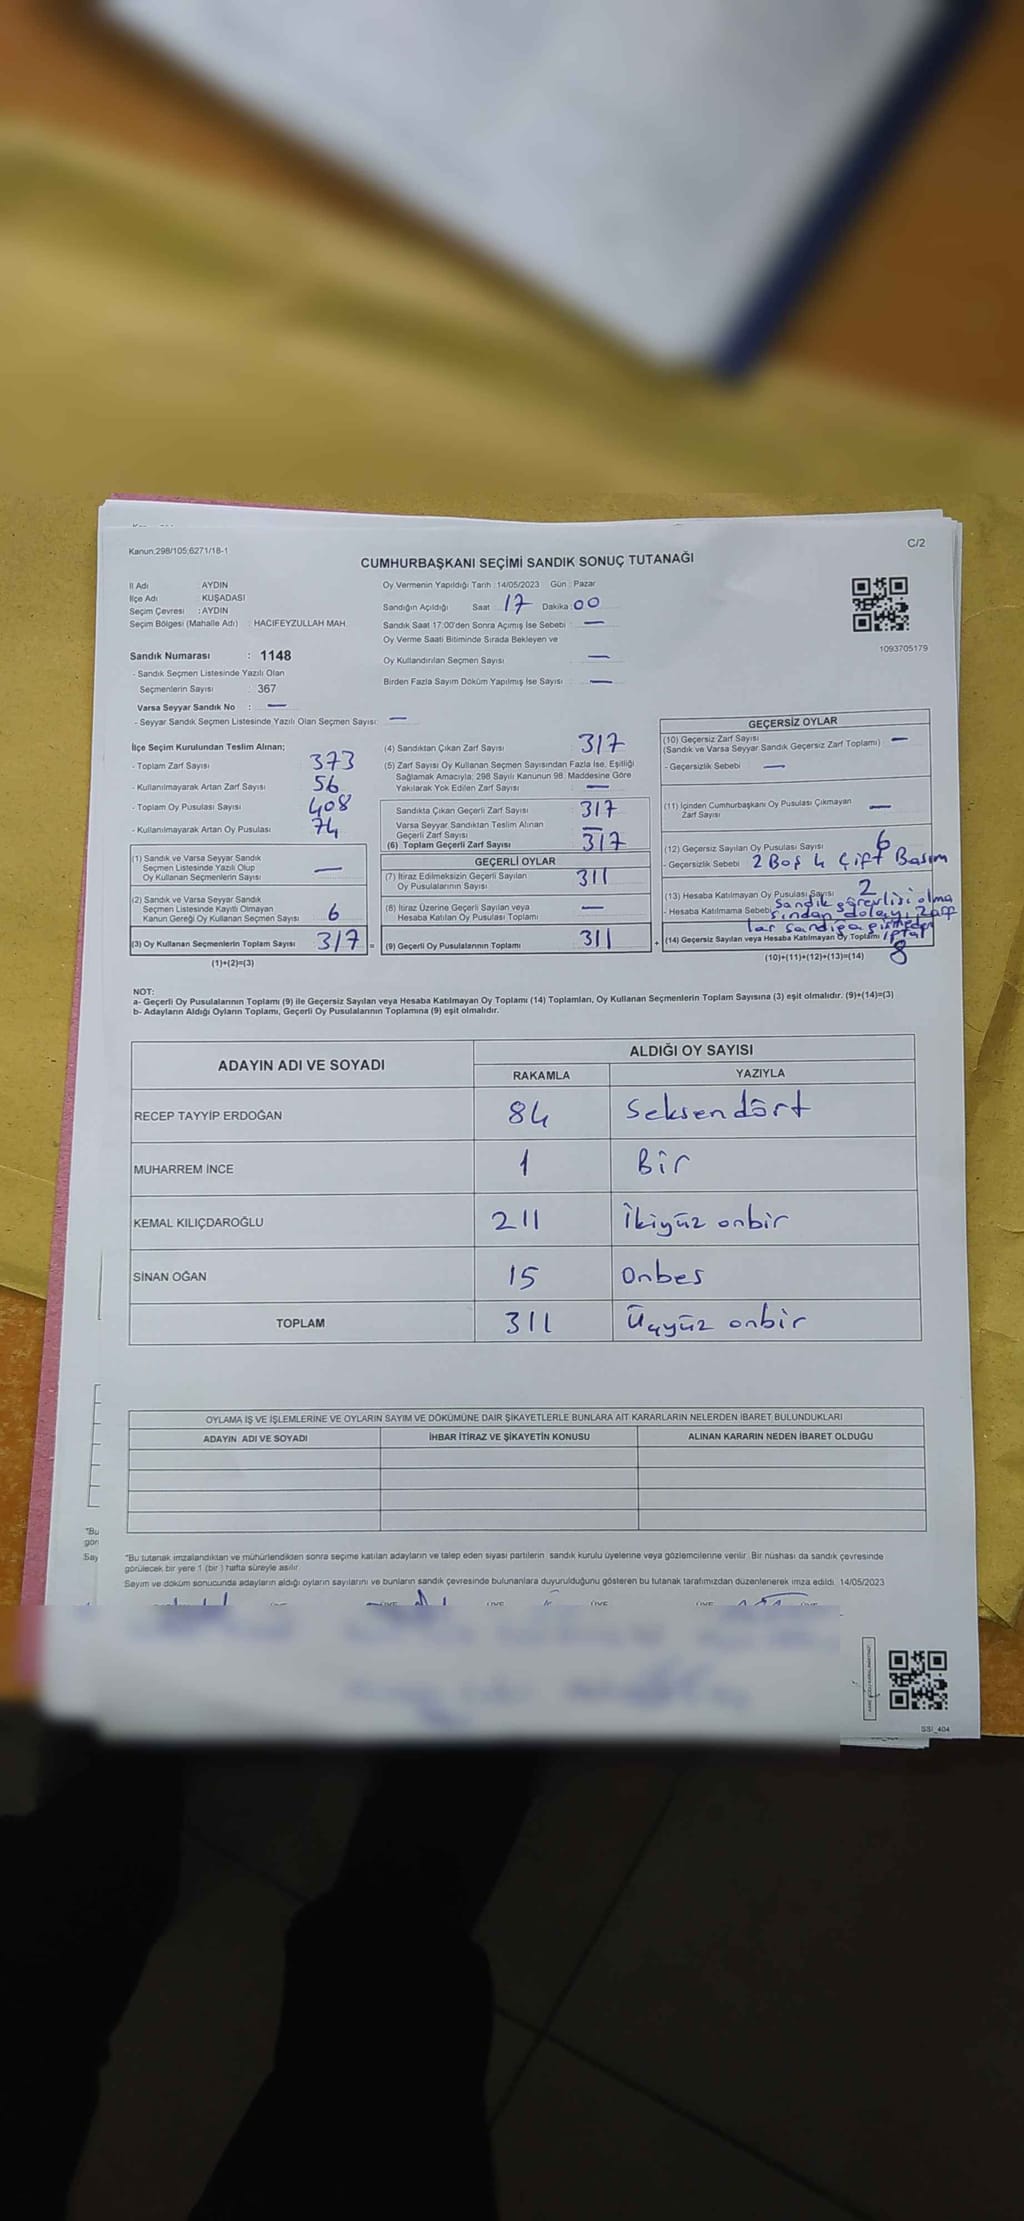 Kanun;298/105;6271/18-1
C/2
CUMHURBAŞKANI SEÇİMİ SANDIK SONUÇ TUTANAĞI
İl Adı AYDIN
İlçe Adı : KUŞADASI
Seçim Çevresi : AYDIN
Seçim Bölgesi (Mahalle Adı) : HACIFEYZULLAH MAH.
Oy Vermenin Yapıldığı Tarih :14/05/2023 Gün : Pazar
Sandığın Açıldığı Saat 17 Dakika: 00
Sandık Saat 17:00'den Sonra Açımış İse Sebebi : —
Oy Verme Saati Bitiminde Sırada Bekleyen ve
Oy Kullandırılan Seçmen Sayısı : —
Birden Fazla Sayım Döküm Yapılmış İse Sayısı : —
1093705179
Sandık Numarası : 1148
- Sandık Seçmen Listesinde Yazılı Olan
Seçmenlerin Sayısı : 367
Varsa Seyyar Sandık No : —
- Seyyar Sandık Seçmen Listesinde Yazılı Olan Seçmen Sayısı: —
İlçe Seçim Kurulundan Teslim Alınan;
- Toplam Zarf Sayısı 373
- Kullanılmayarak Artan Zarf Sayısı 56
- Toplam Oy Pusulası Sayısı 408
- Kullanılmayarak Artan Oy Pusulası 74
(1) Sandık ve Varsa Seyyar Sandık
Seçmen Listesinde Yazılı Olup
Oy Kullanan Seçmenlerin Sayısı —
(2) Sandık ve Varsa Seyyar Sandık
Seçmen Listesinde Kayıtlı Olmayan
Kanun Gereği Oy Kullanan Seçmen Sayısı 6
(3) Oy Kullanan Seçmenlerin Toplam Sayısı 317 =
(1)+(2)=(3)
(4) Sandıktan Çıkan Zarf Sayısı 317
(5) Zarf Sayısı Oy Kullanan Seçmen Sayısından Fazla İse, Eşitliği
Sağlamak Amacıyla; 298 Sayılı Kanunun 98. Maddesine Göre
Yakılarak Yok Edilen Zarf Sayısı —
Sandıkta Çıkan Geçerli Zarf Sayısı 317
Varsa Seyyar Sandıktan Teslim Alınan
Geçerli Zarf Sayısı —
(6) Toplam Geçerli Zarf Sayısı 317
GEÇERLİ OYLAR
(7) İtiraz Edilmeksizin Geçerli Sayılan
Oy Pusulalarının Sayısı 311
(8) İtiraz Üzerine Geçerli Sayılan veya
Hesaba Katılan Oy Pusulası Toplamı —
(9) Geçerli Oy Pusulalarının Toplamı 311 +
GEÇERSİZ OYLAR
(10) Geçersiz Zarf Sayısı
(Sandık ve Varsa Seyyar Sandık Geçersiz Zarf Toplamı) —
- Geçersizlik Sebebi : —
(11) İçinden Cumhurbaşkanı Oy Pusulası Çıkmayan
Zarf Sayısı —
(12) Geçersiz Sayılan Oy Pusulası Sayısı 6
- Geçersizlik Sebebi 2 Boş 4 Çift Basım
(13) Hesaba Katılmayan Oy Pusulası Sayısı 2
- Hesaba Katılmama Sebebi Sandık görevlisi olma
sından dolayı zarf
lar sandığa girmeden
iptal
(14) Geçersiz Sayılan veya Hesaba Katılmayan Oy Toplamı 8
(10)+(11)+(12)+(13)=(14)
NOT:
a- Geçerli Oy Pusulalarının Toplamı (9) ile Geçersiz Sayılan veya Hesaba Katılmayan Oy Toplamı (14) Toplamları, Oy Kullanan Seçmenlerin Toplam Sayısına (3) eşit olmalıdır. (9)+(14)=(3)
b- Adayların Aldığı Oyların Toplamı, Geçerli Oy Pusulalarının Toplamına (9) eşit olmalıdır.
ADAYIN ADI VE SOYADI
ALDIĞI OY SAYISI
RAKAMLA YAZIYLA
RECEP TAYYİP ERDOĞAN 84 Seksendört
MUHARREM İNCE 1 Bir
KEMAL KILIÇDAROĞLU 211 İkiyüz onbir
SİNAN OĞAN 15 Onbes
TOPLAM 311 Üçyüz onbir
OYLAMA İŞ VE İŞLEMLERİNE VE OYLARIN SAYIM VE DÖKÜMÜNE DAİR ŞİKAYETLERLE BUNLARA AİT KARARLARIN NELERDEN İBARET BULUNDUKLARI
ADAYIN ADI VE SOYADI İHBAR İTİRAZ VE ŞİKAYETİN KONUSU ALINAN KARARIN NEDEN İBARET OLDUĞU
"Bu
gör
Say
*Bu tutanak imzalandıktan ve mühürlendikten sonra seçime katılan adayların ve talep eden siyasi partilerin sandık kurulu üyelerine veya gözlemcilerine verilir. Bir nüshası da sandık çevresinde
görülecek bir yere 1 (bir ) hafta süreyle asılır.
Sayım ve döküm sonucunda adayların aldığı oyların sayılarını ve bunların sandık çevresinde bulunanlara duyurulduğunu gösteren bu tutanak tarafımızdan düzenlenerek imza edildi. 14/05/2023
SSI_404